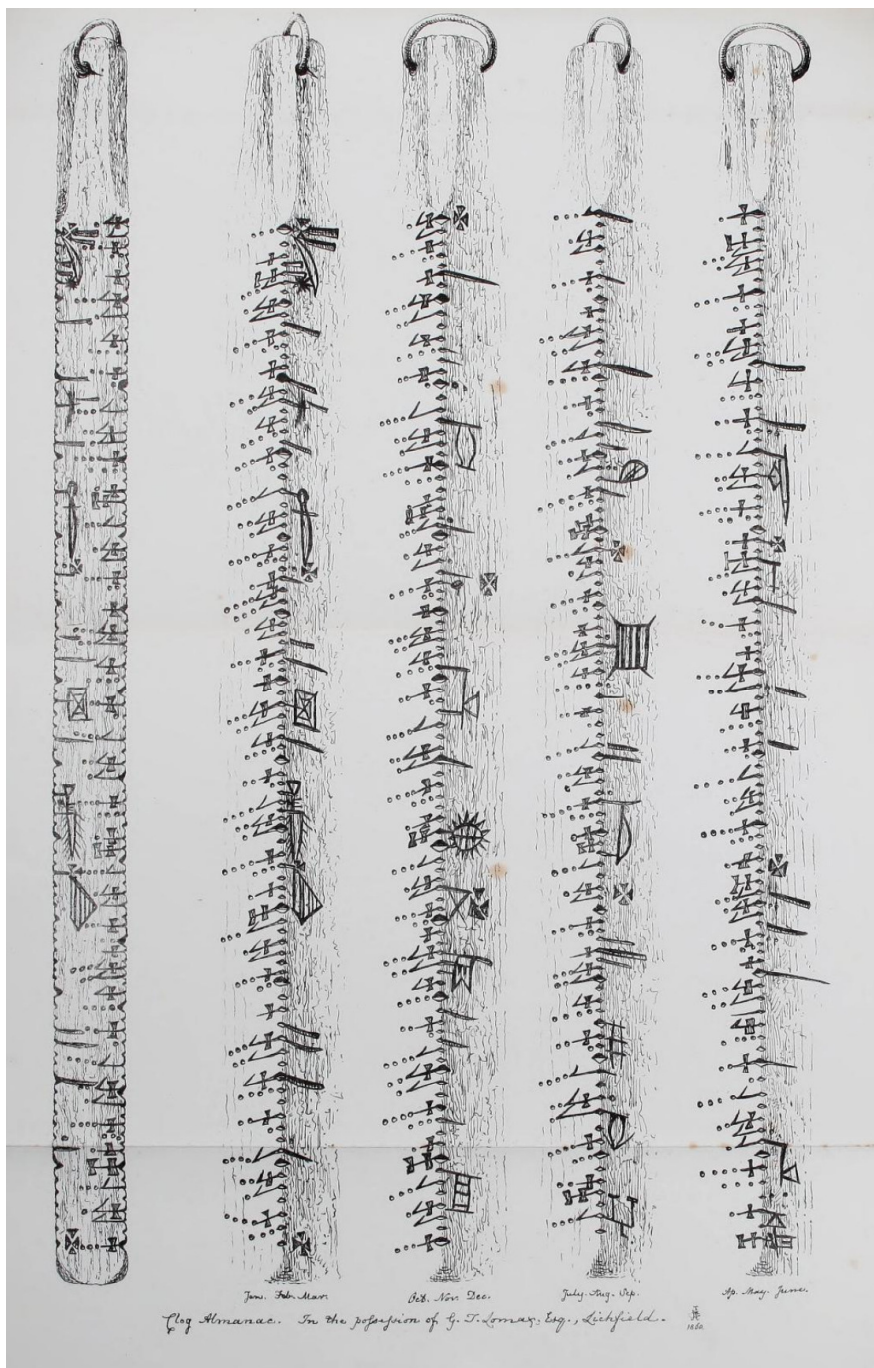 Jan. Feb. Mar.
Oct. Nov. Dec.
July. Aug. Sep.
Ap. May. June.
Clog Almanac. In the possession of G. T. Lomax. Esq., Lichfield.
1860.